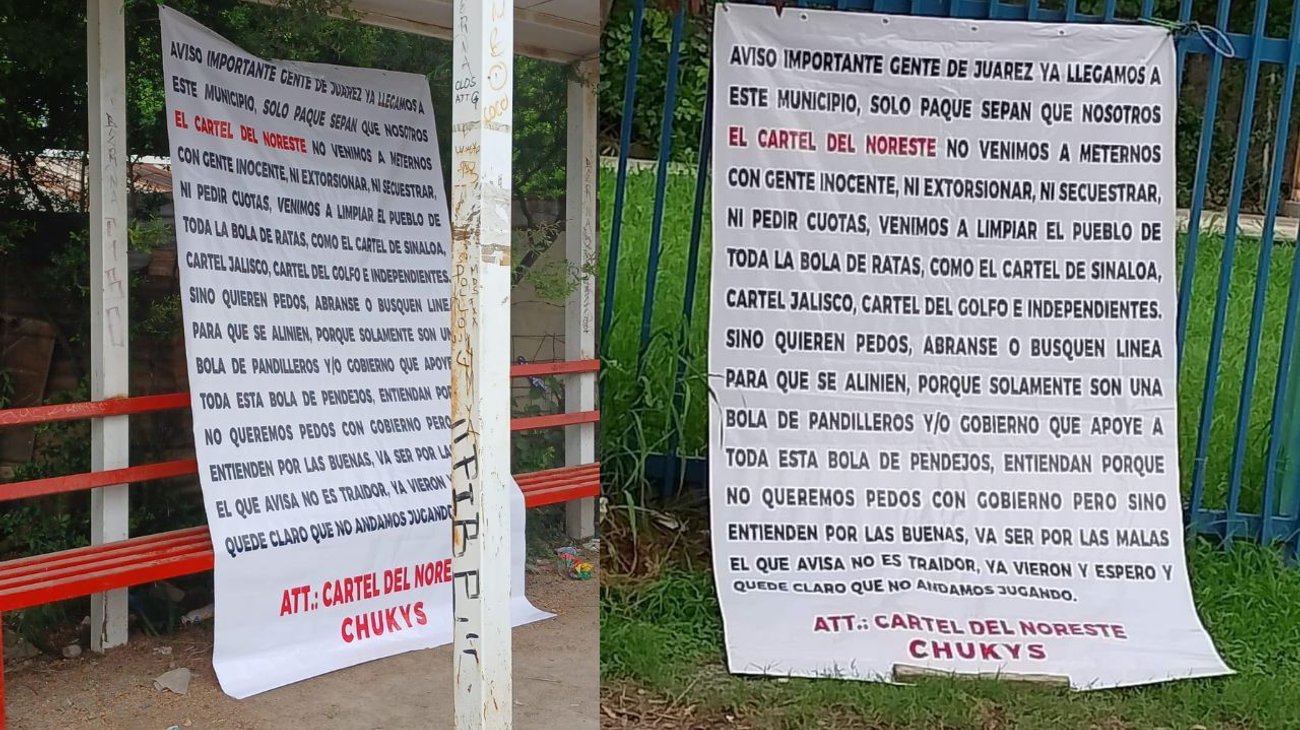 AVISO IMPORTANTE GENTE DE JUAREZ YA LLEGAMOS A
ESTE MUNICIPIO, SOLO PAQUE SEPAN QUE NOSOTROS
EL CARTEL DEL NORESTE NO VENIMOS A METERNOS
CON GENTE INOCENTE, NI EXTORSIONAR, NI SECUESTRAR,
NI PEDIR CUOTAS, VENIMOS A LIMPIAR EL PUEBLO DE
TODA LA BOLA DE RATAS, COMO EL CARTEL DE SINALOA,
CARTEL JALISCO, CARTEL DEL GOLFO E INDEPENDIENTES.
SINO QUIEREN PEDOS, ABRANSE O BUSQUEN LINEA
PARA QUE SE ALINIEN, PORQUE SOLAMENTE SON UN
BOLA DE PANDILLEROS Y/O GOBIERNO QUE APOYE
TODA ESTA BOLA DE PENDEJOS, ENTIENDAN POR
NO QUEREMOS PEDOS CON GOBIERNO PERO
ENTIENDEN POR LAS BUENAS, VA SER POR LA
EL QUE AVISA NO ES TRAIDOR, YA VIERON
QUEDE CLARO QUE NO ANDAMOS JUGANDO
ATT.: CARTEL DEL NORE
CHUKYS
AVISO IMPORTANTE GENTE DE JUAREZ YA LLEGAMOS A
ESTE MUNICIPIO, SOLO PAQUE SEPAN QUE NOSOTROS
EL CARTEL DEL NORESTE NO VENIMOS A METERNOS
CON GENTE INOCENTE, NI EXTORSIONAR, NI SECUESTRAR,
NI PEDIR CUOTAS, VENIMOS A LIMPIAR EL PUEBLO DE
TODA LA BOLA DE RATAS, COMO EL CARTEL DE SINALOA,
CARTEL JALISCO, CARTEL DEL GOLFO E INDEPENDIENTES.
SINO QUIEREN PEDOS, ABRANSE O BUSQUEN LINEA
PARA QUE SE ALINIEN, PORQUE SOLAMENTE SON UNA
BOLA DE PANDILLEROS Y/O GOBIERNO QUE APOYE A
TODA ESTA BOLA DE PENDEJOS, ENTIENDAN PORQUE
NO QUEREMOS PEDOS CON GOBIERNO PERO SINO
ENTIENDEN POR LAS BUENAS, VA SER POR LAS MALAS
EL QUE AVISA NO ES TRAIDOR, YA VIERON Y ESPERO Y
QUEDE CLARO QUE NO ANDAMOS JUGANDO.
ATT.: CARTEL DEL NORESTE
CHUKYS